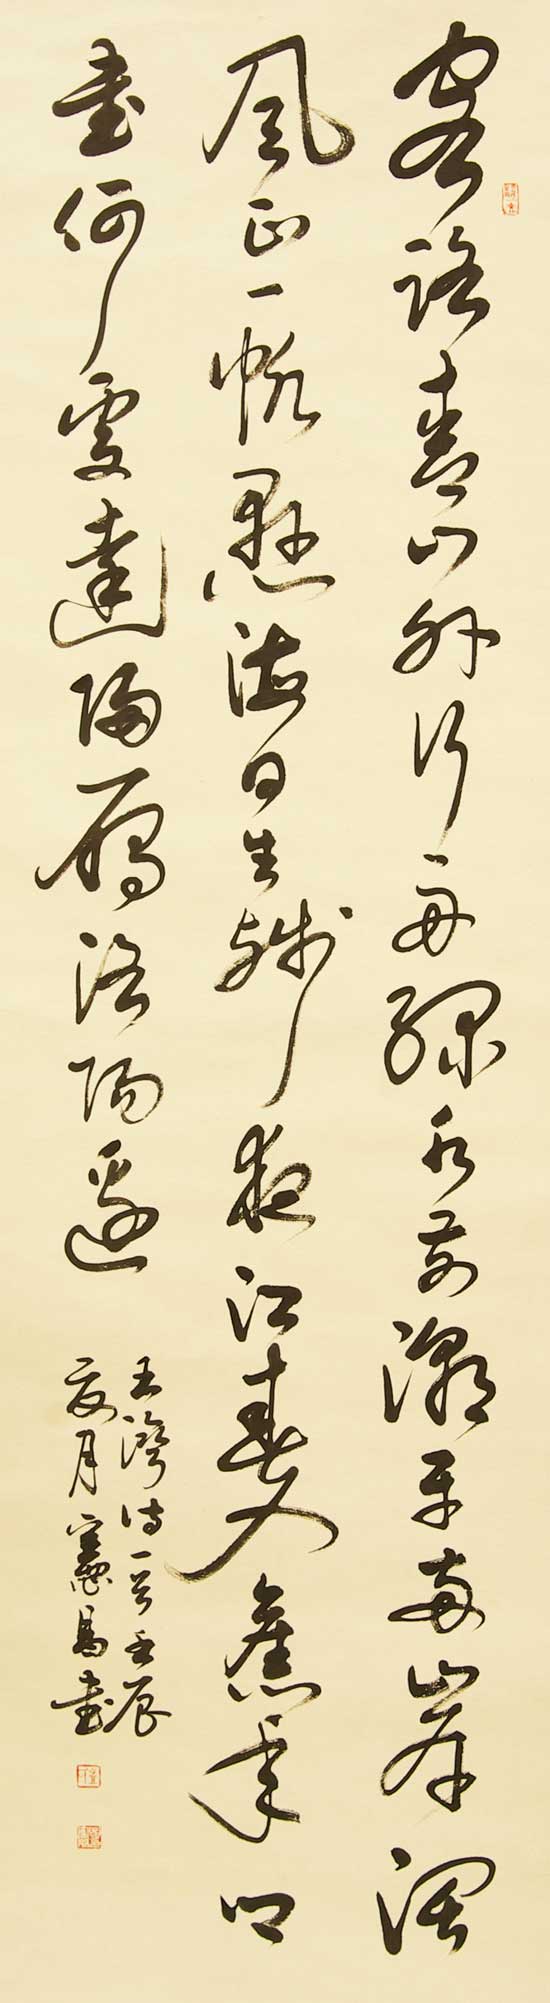 客路青山外行舟綠水前潮平兩岸闊
風正一帆懸海日生殘夜江春入舊年鄉
書何處達歸雁洛陽邊
王灣詩一首壬辰
夏月憲書